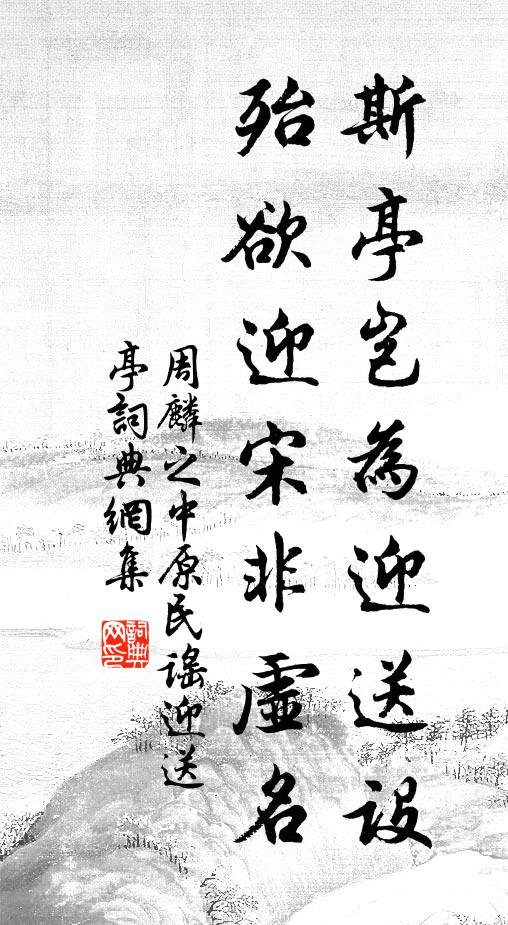 斯亭豈為迎送設
殆欲迎宋非虛名
周麟之中原民謠迎送
亭詞典網集
詞典網印